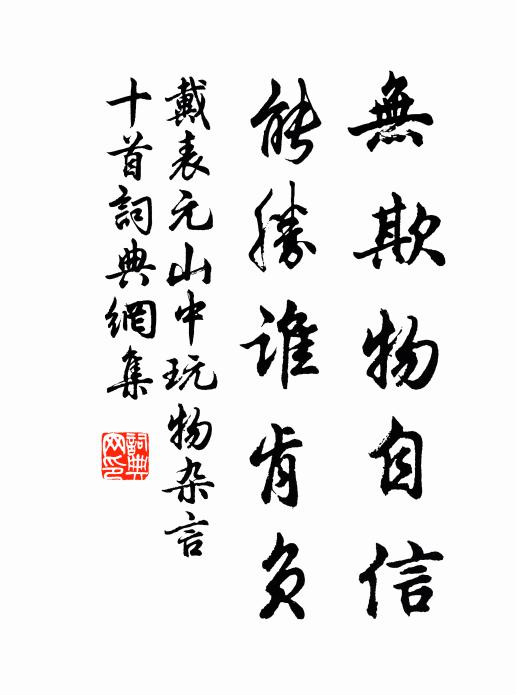 無欺物自信
能勝誰肯負
戴表元山中玩物杂言
十首詞典網集
詞典网印